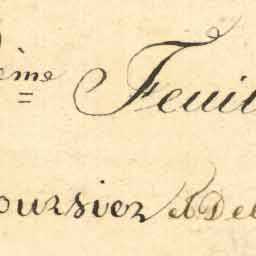 ème Feuil
oursier & Del